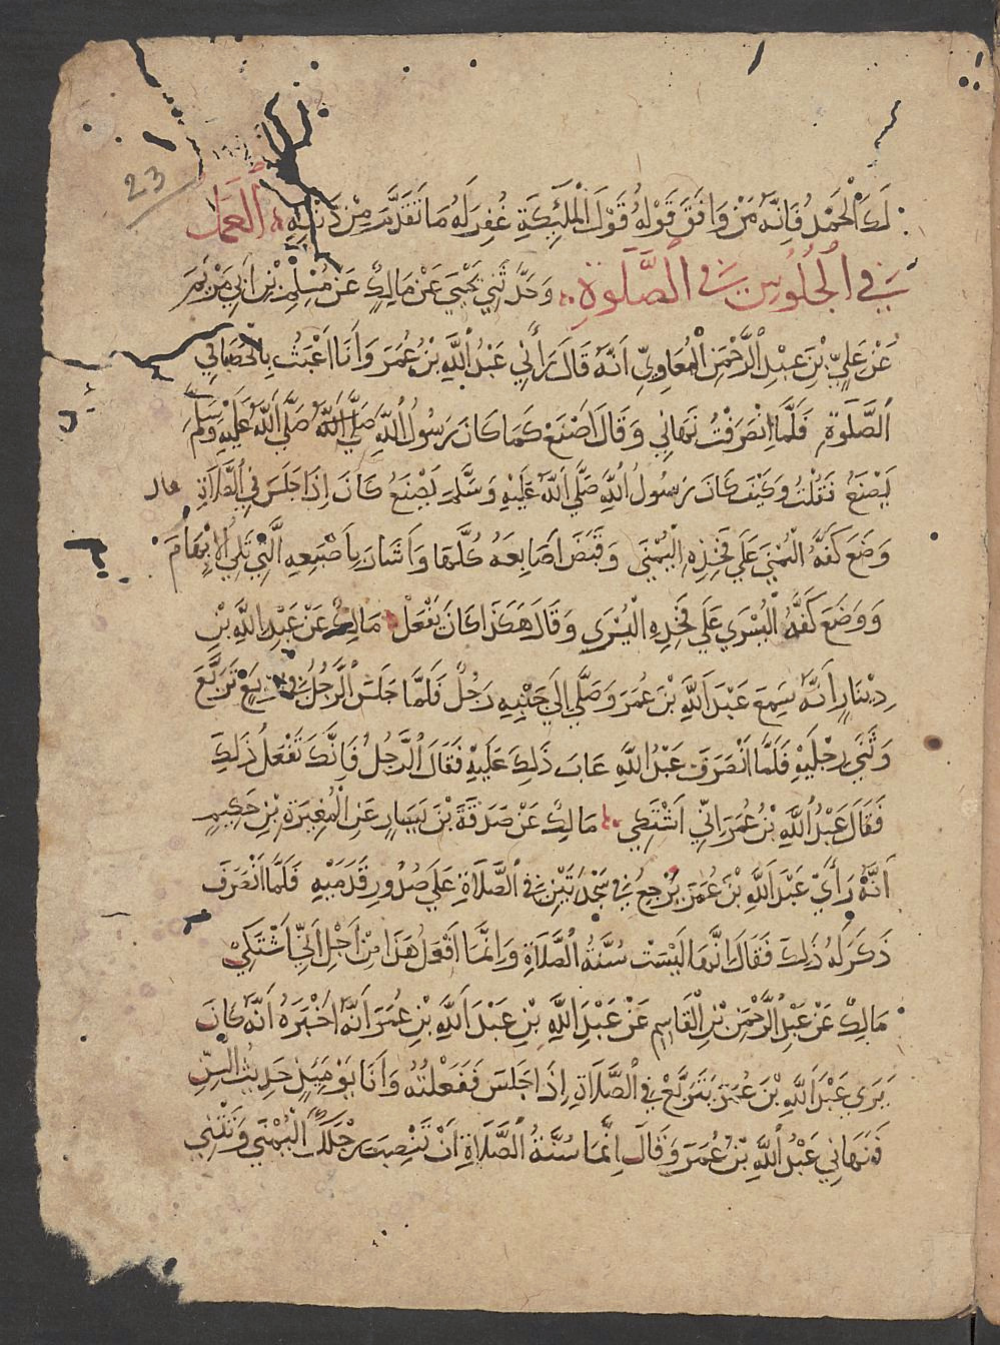 23
لَكَ الْحَمْدُ فَإِنَّهُ مَنْ وَافَقَ قَوْلُهُ قَوْلَ الْمَلَئِكَةِ غُفِرَ لَهُ مَا تَقَدَّمَ مِنْ ذَنْبِهِ الْعَمَل
فِي الْجُلُوسِ فِي الصَّلَوةِ وَحَدَّثَنِي يَحْيَى عَنْ مَالِكٍ عَنْ مُسْلِمِ بْنِ أَبِي مَرْيَمَ
عَنْ عَلِيِّ بْنِ عَبْدِ الرَّحْمَنِ الْمُعَاوِيِّ أَنَّهُ قَالَ رَأَنِي عَبْدُ اللَّهِ بْنُ عُمَرَ وَأَنَا أَعْبَثُ بِالْحَصَا فِي
الصَّلَوةِ فَلَمَّا انْصَرَفْتُ نَهَانِي وَقَالَ اصْنَعْ كَمَا كَانَ رَسُولُ اللَّهِ صَلَّى اللَّهُ صَلَّى اللَّهُ عَلَيْهِ وَسَلَّمَ
يَصْنَعُ فَقُلْتُ وَكَيْفَ كَانَ رَسُولُ اللَّهِ صَلَّى اللَّهُ عَلَيْهِ وَسَلَّمَ يَصْنَعُ كَانَ إِذَا جَلَسَ فِي الصَّلَاةِ قال
وَضَعَ كَفَّهُ الْيُمْنَى عَلَى فَخِذِهِ الْيُمْنَى وَقَبَضَ أَصَابِعَهُ كُلَّهَا وَأَشَارَ بِأَصْبُعِهِ الَّتِي تَلِي الْإِبْهَامَ
وَوَضَعَ كَفَّهُ الْيُسْرَى عَلَى فَخِذِهِ الْيُسْرَى وَقَالَ هَكَذَا كَانَ يَفْعَلُ مَالِكٌ عَنْ عَبْدِ اللَّهِ بْنِ
دِيْنَارٍ أَنَّهُ سَمِعَ عَبْدَ اللَّهِ بْنَ عُمَرَ وَصَلَّى إِلَى جَنْبِهِ رَجُلٌ فَلَمَّا جَلَسَ الرَّجُلُ فِي أَرْبَعٍ تَرَبَّعَ
وَثَنَى رِجْلَيْهِ فَلَمَّا انْصَرَفَ عَبْدُ اللَّهِ عَابَ ذَلِكَ عَلَيْهِ فَقَالَ الرَّجُلُ فَإِنَّكَ تَفْعَلُ ذَلِكَ
فَقَالَ عَبْدُ اللَّهِ بْنُ عُمَرَ إِنِّي أَشْتَكِي مَالِكٌ عَنْ صَدَقَةَ بْنِ يَسَارٍ عَنِ الْمُغِيرَةِ بْنِ حَكِيمٍ
أَنَّهُ رَأَى عَبْدَ اللَّهِ بْنَ عُمَرَ يَرْجِعُ فِي سَجْدَتَيْنِ فِي الصَّلَاةِ عَلَى صُدُورِ قَدَمَيْهِ فَلَمَّا انْصَرَفَ
ذَكَرَ لَهُ ذَلِكَ فَقَالَ إِنَّهَا لَيْسَتْ سُنَّةُ الصَّلَاةِ وَإِنَّمَا أَفْعَلُ هَذَا مِنْ أَجْلِ أَنِّي أَشْتَكِي
مَالِكٌ عَنْ عَبْدِ الرَّحْمَنِ بْنِ الْقَاسِمِ عَنْ عَبْدِ اللَّهِ بْنِ عَبْدِ اللَّهِ بْنِ عُمَرَ أَنَّهُ أَخْبَرَهُ أَنَّهُ كَانَ
يَرَى عَبْدَ اللَّهِ بْنَ عُمَرَ يَتَرَبَّعُ فِي الصَّلَاةِ إِذَا جَلَسَ فَفَعَلْتُهُ وَأَنَا يَوْمَئِذٍ حَدِيثُ السِّنِّ
فَنَهَانِي عَبْدُ اللَّهِ بْنُ عُمَرَ وَقَالَ إِنَّمَا سُنَّةُ الصَّلَاةِ أَنْ تَنْصِبَ رِجْلَكَ الْيُمْنَى وَتَثْنِي